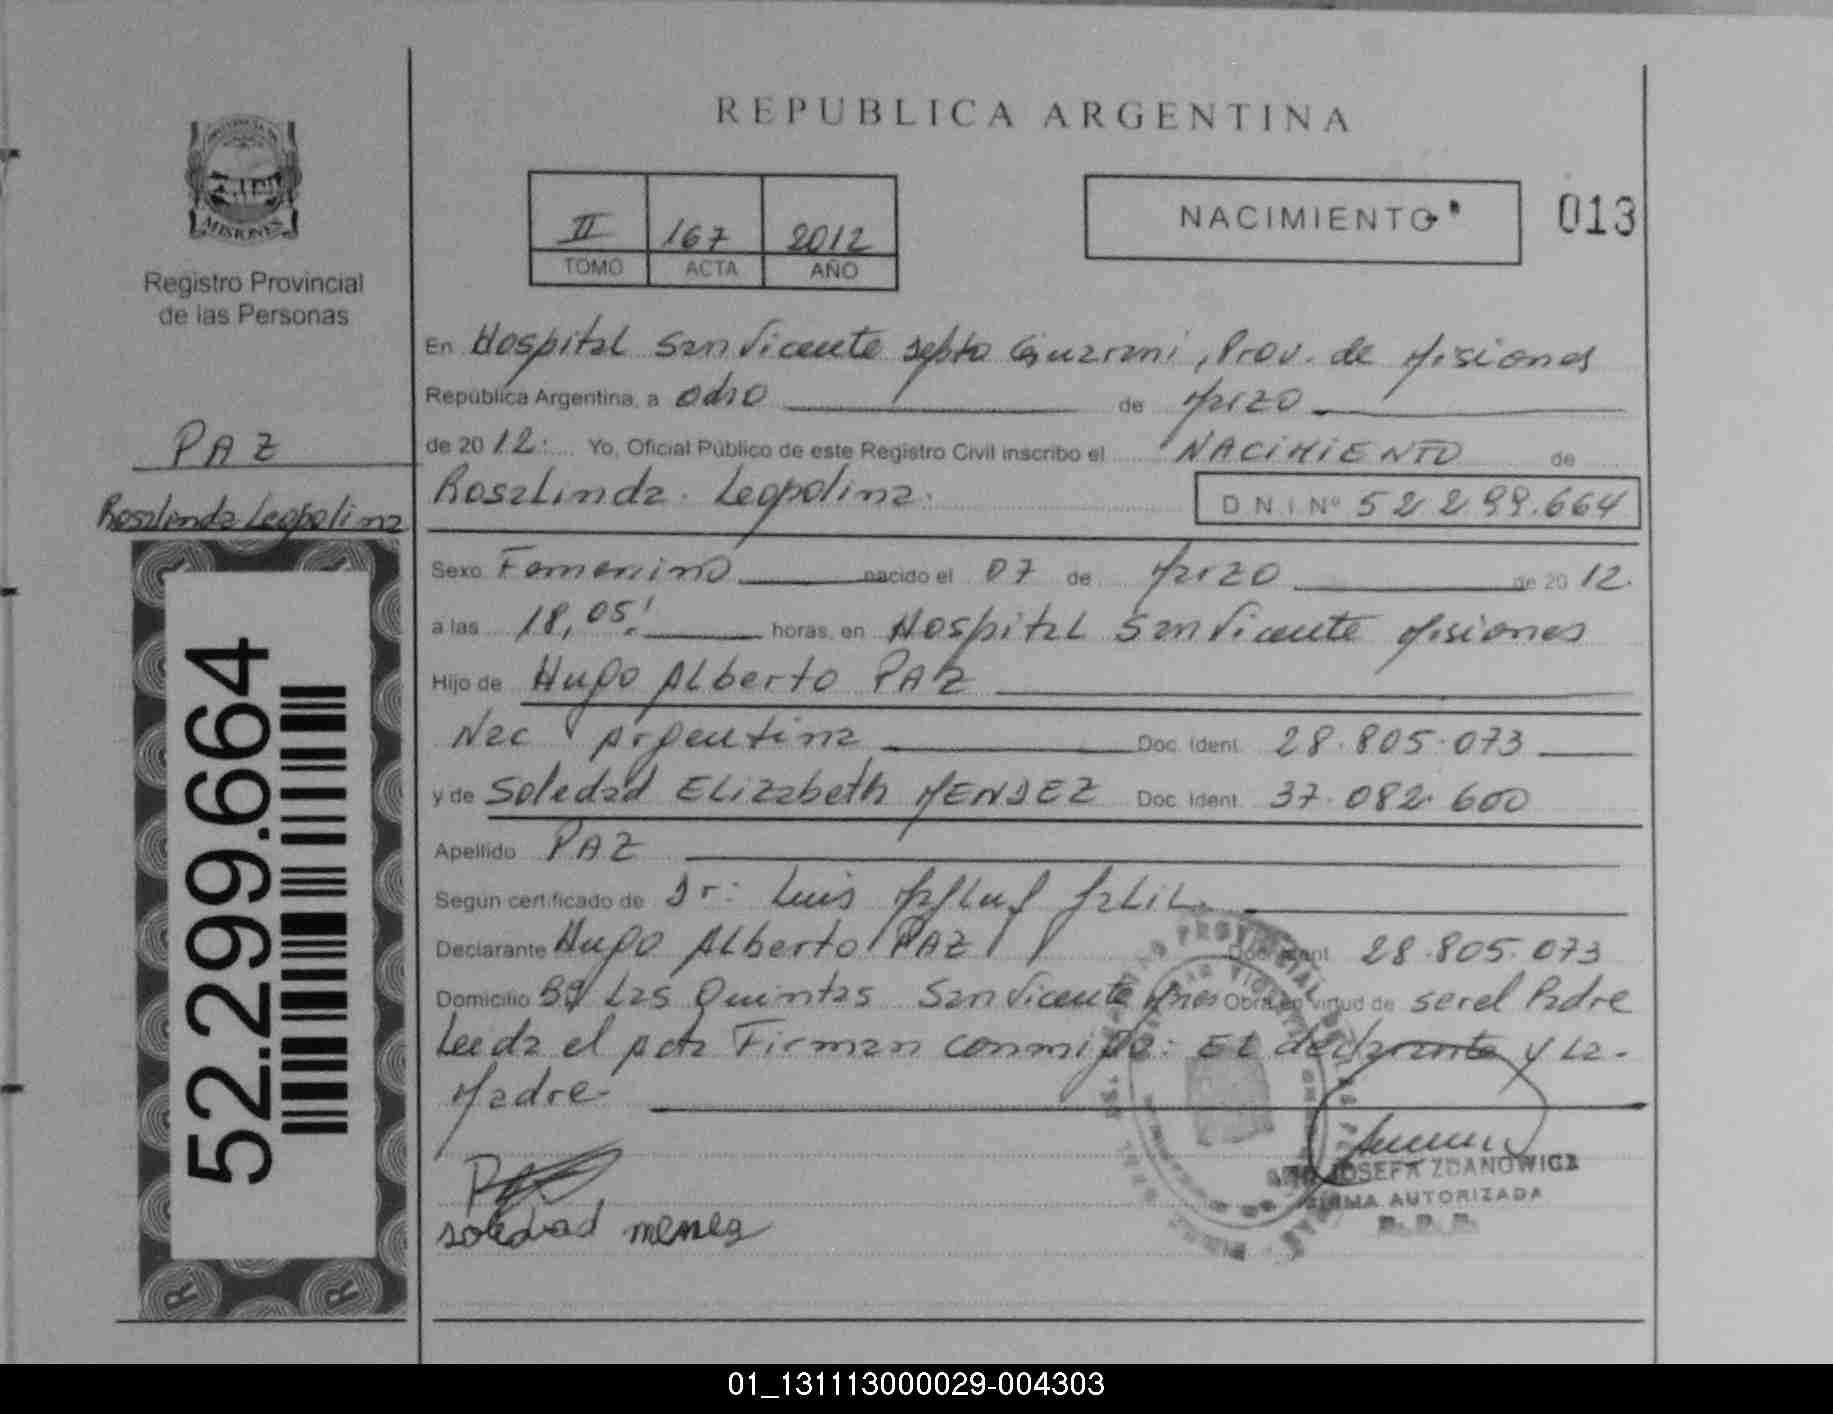 REPUBLICA ARGENTINA
MISIONES
Registro Provincial
de las Personas
II 167 2012
TOMO ACTA AÑO
NACIMIENTO
013
En Hospital San Vicente Depto Guarani, Prov. de Misiones
República Argentina, a ocho de Marzo
de 2012. Yo, Oficial Público de este Registro Civil inscribo el NACIMIENTO de
Rosalinda Leopolina. D N I Nº 52 299.664
PAZ
Rosalinda Leopolina
52.299.664
Sexo Femenino nacido el 07 de Marzo de 2012.
a las 18,05. horas, en Hospital San Vicente Misiones
Hijo de Hugo Alberto PAZ
Nac Argentina Doc. Ident. 28.805.073
y de Soledad Elizabeth MENDEZ Doc. Ident. 37.082.600
Apellido PAZ
Según certificado de Dr: Luis
Declarante Hugo Alberto PAZ Doc. Ident. 28.805.073
Domicilio Bº Las Quintas San Vicente Mnes Obra en virtud de ser el Padre
Leida el Acta Firman conmigo: El declarante y La
Madre
soledad menez
JOSEFA ZDANOWICZ
FIRMA AUTORIZADA
R.P.P.
01_131113000029-004303